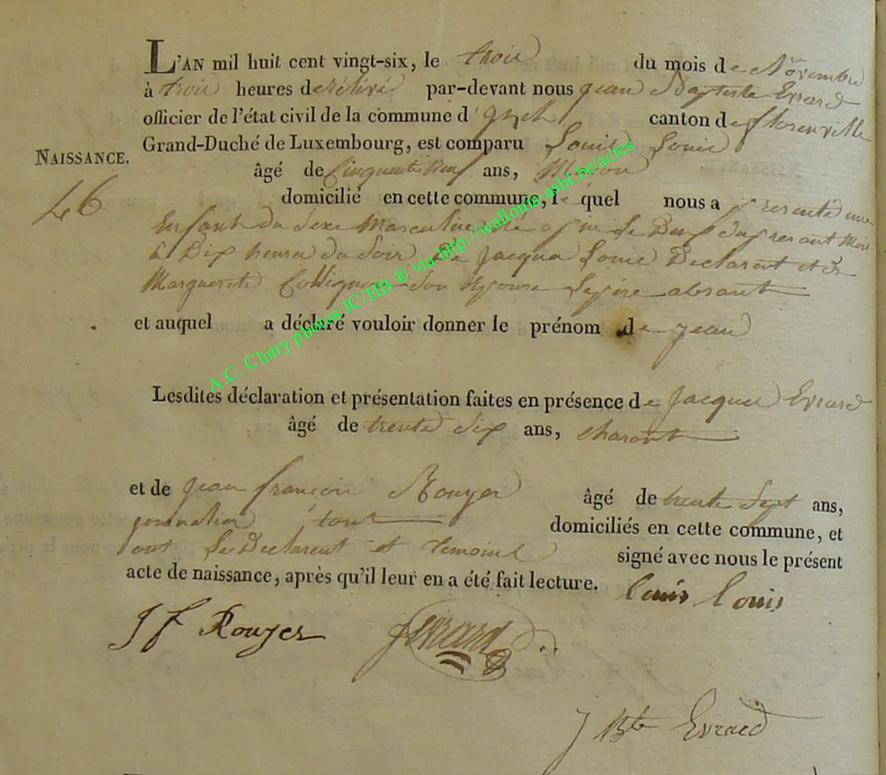 L'AN mil huit cent vingt-six, le trois du mois de Novembre
à trois heures de relivé par-devant nous jean Baptiste Evrard
officier de l'état civil de la commune d'Izel canton de florenville
Grand-Duché de Luxembourg, est comparu Louis Louis
NAISSANCE.
46
âgé de Cinquante neuf ans, Maçon
domicilié en cette commune, le quel nous a presenté une
Enfant du Sexe Masculin du present Mois
à Dix heures du Soir de jacque Louis Declarent et de
Marguerite Collignon son Epouse Le père absent
et auquel a déclaré vouloir donner le prénom de jean
Lesdites déclaration et présentation faites en présence de jacque Evrard
âgé de trente Six ans, charon
et de jean françois Rouyer âgé de trente Sept ans,
tout domiciliés en cette commune, et
ont Le Declarent et temoins signé avec nous le présent
acte de naissance, après qu'il leur en a été fait lecture. Louis Louis
J f Rouyer JEvrard
J Bte Evrard
A.C. Chiny photos JC/HB ® via http://wallonia.asbl.be/actes